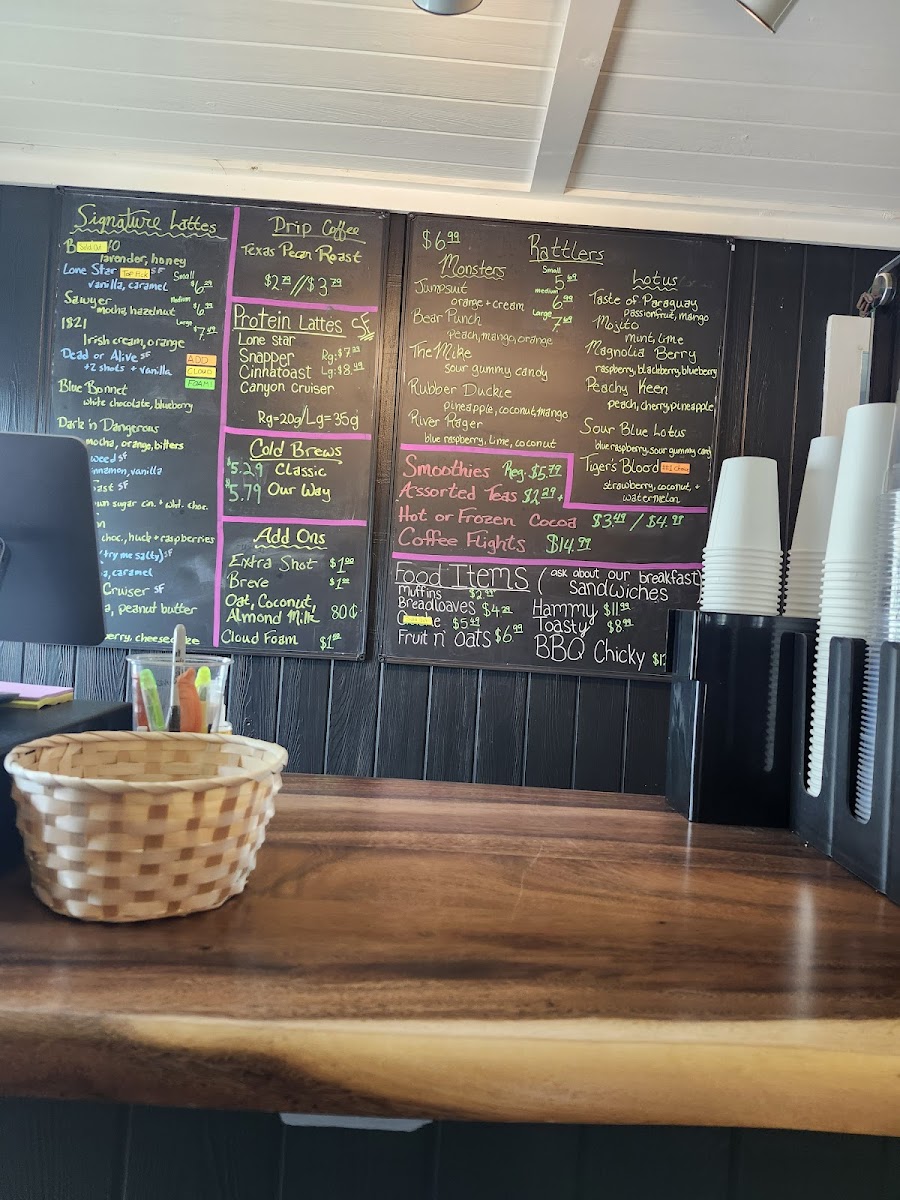 Signature Lattes
Sold Out
lavender, honey
Lone Star Top Pick SF
vanilla, caramel
Small
$6
Sawyer
mocha, hazelnut
Medium
$6
1821
Large
$7
Irish cream, orange
Dead or Alive SF
+2 shots + vanilla
ADD
CLOUD
FOAM!
Blue Bonnet
white chocolate, blueberry
Dark n Dangerous
mocha, orange, bitters
weed SF
vanilla
ast SF
sugar cin. + wht. choc.
choc, huck + raspberries
try me salty) SF
caramel
Cruiser SF
peanut butter
cheesecake
Drip Coffee
Texas Pecan Roast
$2.79 // $3.79
Protein Lattes SF
Lone star
Snapper
Rg: $7
Cinnatoast
Lg: $8
Canyon Cruiser
Rg=20g/Lg=35g
Cold Brews
$5.29 Classic
$5.79 Our Way
Add Ons
Extra Shot $1
Breve $1
Oat, Coconut,
Almond Milk 80¢
Cloud Foam $1
$6.99
Rattlers
Monsters
Small
5
medium
6
Large
7
Jumpsuit
orange + cream
Bear Punch
peach, mango, orange
The Mike
sour gummy candy
Rubber Duckie
pineapple, coconut, mango
River Rager
blue raspberry, lime, coconut
Lotus
Taste of Paraguay
passionfruit, mango
Mojito
mint, lime
Magnolia Berry
raspberry, blackberry, blueberry
Peachy Keen
peach, cherry, pineapple
Sour Blue Lotus
blue raspberry, sour gummy candy
Tiger's Blood
strawberry, coconut, +
watermelon
Smoothies Reg. $5.79
Assorted Teas $2.29+
Hot or Frozen Cocoa $3.49 / $4
Coffee Flights $14.99
Food Items (ask about our breakfast)
Sandwiches
Muffins $2
Breadloaves $4
$5
Fruit n' Oats $6.99
Hammy $11
Toasty $8
BBQ Chicky